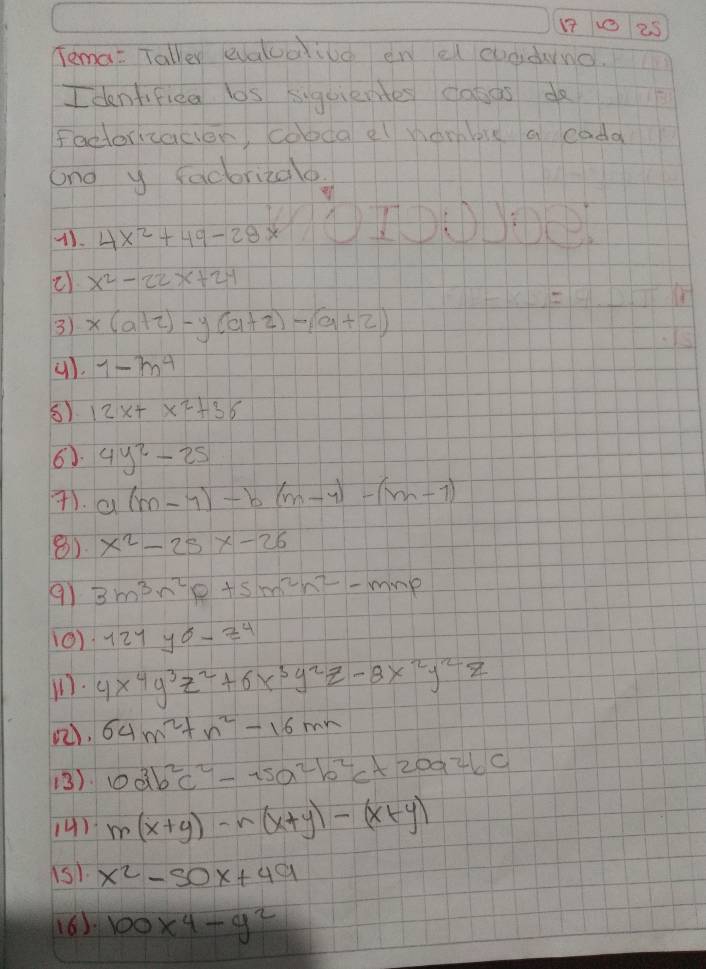 17 10 25
Tema: Taller evaluativo en el cuaderno.
Identifica los siguientes casos de
factorización, coloca el nombre a cada
uno y factorizalo.
1). 4x² + 49 - 28x
2) x² - 22x + 21
3) x(a+2) - y(a+2) - (a+2)
4). 1 - m⁴
5). 12x + x² + 36
6). 4y² - 25
7). a(m-1) - b(m-1) - (m-1)
8). x² - 25x - 26
9) 3m³n²p + 5m²n² - mnp
10). 121 y⁶ - z⁴
11). 4x⁴y³z² + 6x³y²z - 8x²y²z
12). 64m² + n² - 16mn
13). 10a³b²c² - 15a²b²c + 20a²bc
14). m(x+y) - n(x+y) - (x+y)
15). x² - 50x + 49
16). 100x4 - y²